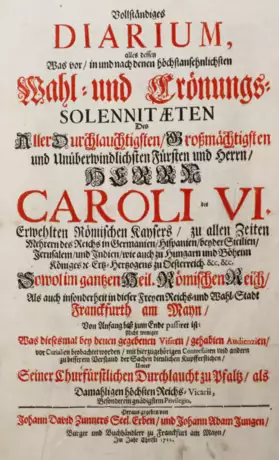 Vollständiges
DIARIUM,
alles dessen
Was vor / in und nach denen höchstansehnlichsten
Wahl- und Crönungs-
SOLENNITÆTEN
Des
Aller Durchlauchtigsten / Großmächtigsten
und Unüberwindlichsten Fürsten und Herrn /
HERRN
CAROLI des VI.
Erwehlten Römischen Kaysers / zu allen Zeiten
Mehrern des Reichs in Germanien / Hispanien / beyder Sicilien /
Jerusalem / und Indien / wie auch zu Hungarn und Böheim
Königes &c. Ertz-Hertzogens zu Oesterreich &c. &c. &c.
Sowol im gantzen Heil. Römischen Reich /
Als auch insonderheit in dieser Freyen Reichs- und Wahl-Stadt
Franckfurth am Mayn /
Von Anfang biß zum Ende passiret ist:
Nicht weniger
Was dieses mal bey denen gegebenen Visiten / gehabten Audientien /
vor Curialien beobachtet worden / mit hierzu gehörigen und andern
zu besserem Verstand der Sachen dienlichen Kupfferstichen /
Unter
Seiner Churfürstlichen Durchlaucht zu Pfaltz / als
Damahligen höchsten Reichs-Vicarii,
Besonderem gnädigstem Privilegio.
Heraus gegeben von
Johann David Zunners Seel. Erben / und Johann Adam Jungen /
Burger und Buchhändlere zu Franckfurt am Mayn /
Im Jahr Christi